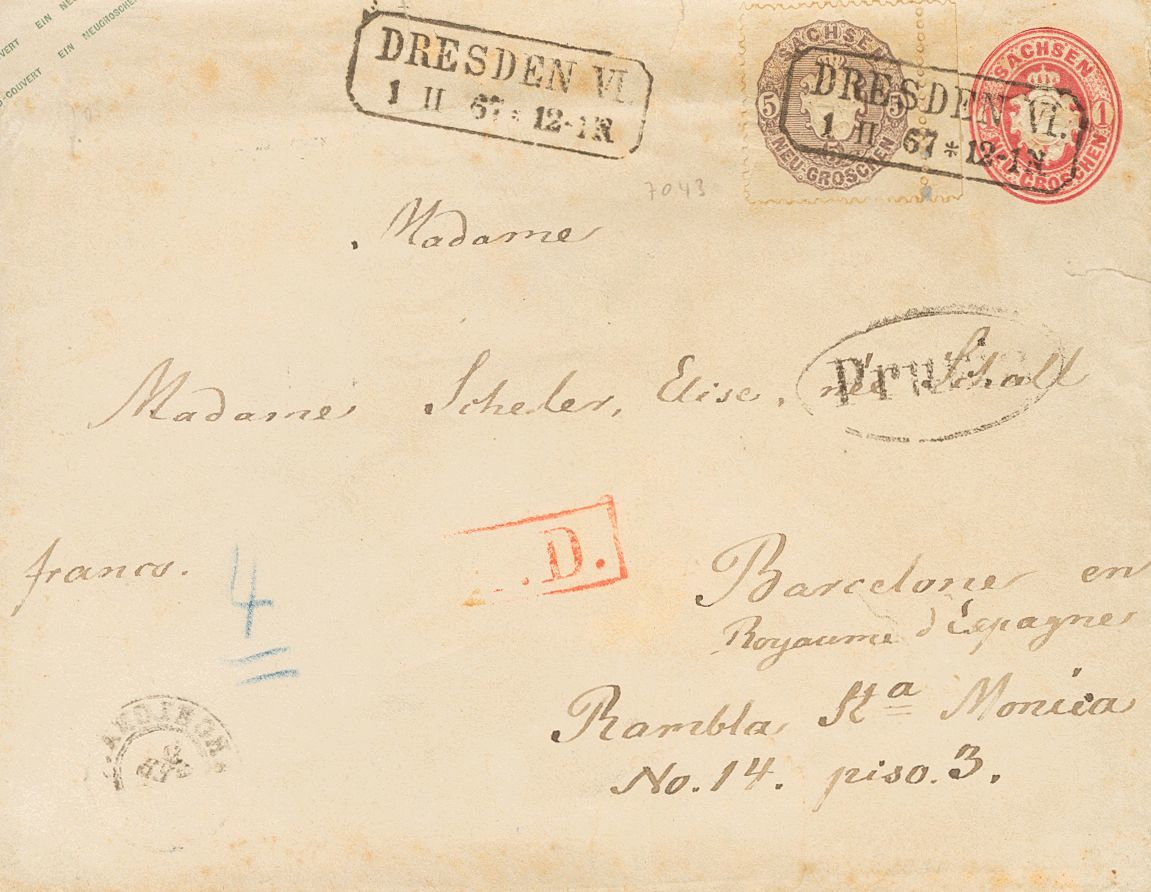 EIN NEUGROSCHEN
COUVERT EIN NEUGROSCHEN
COUVERT
DRESDEN VI.
1 II 67 * 12-1 N
SACHSEN
5 5
NEU-GROSCHEN
DRESDEN VI.
1 II 67 * 12-1 N
SACHSEN
1
NEU-GROSCHEN
7043
Madame
Madame Scheler, Elise, née Schall
franco.
4
D.
Barcelone en
Royaume d'Espagne
Rambla Sta Monica
No. 14. piso. 3.